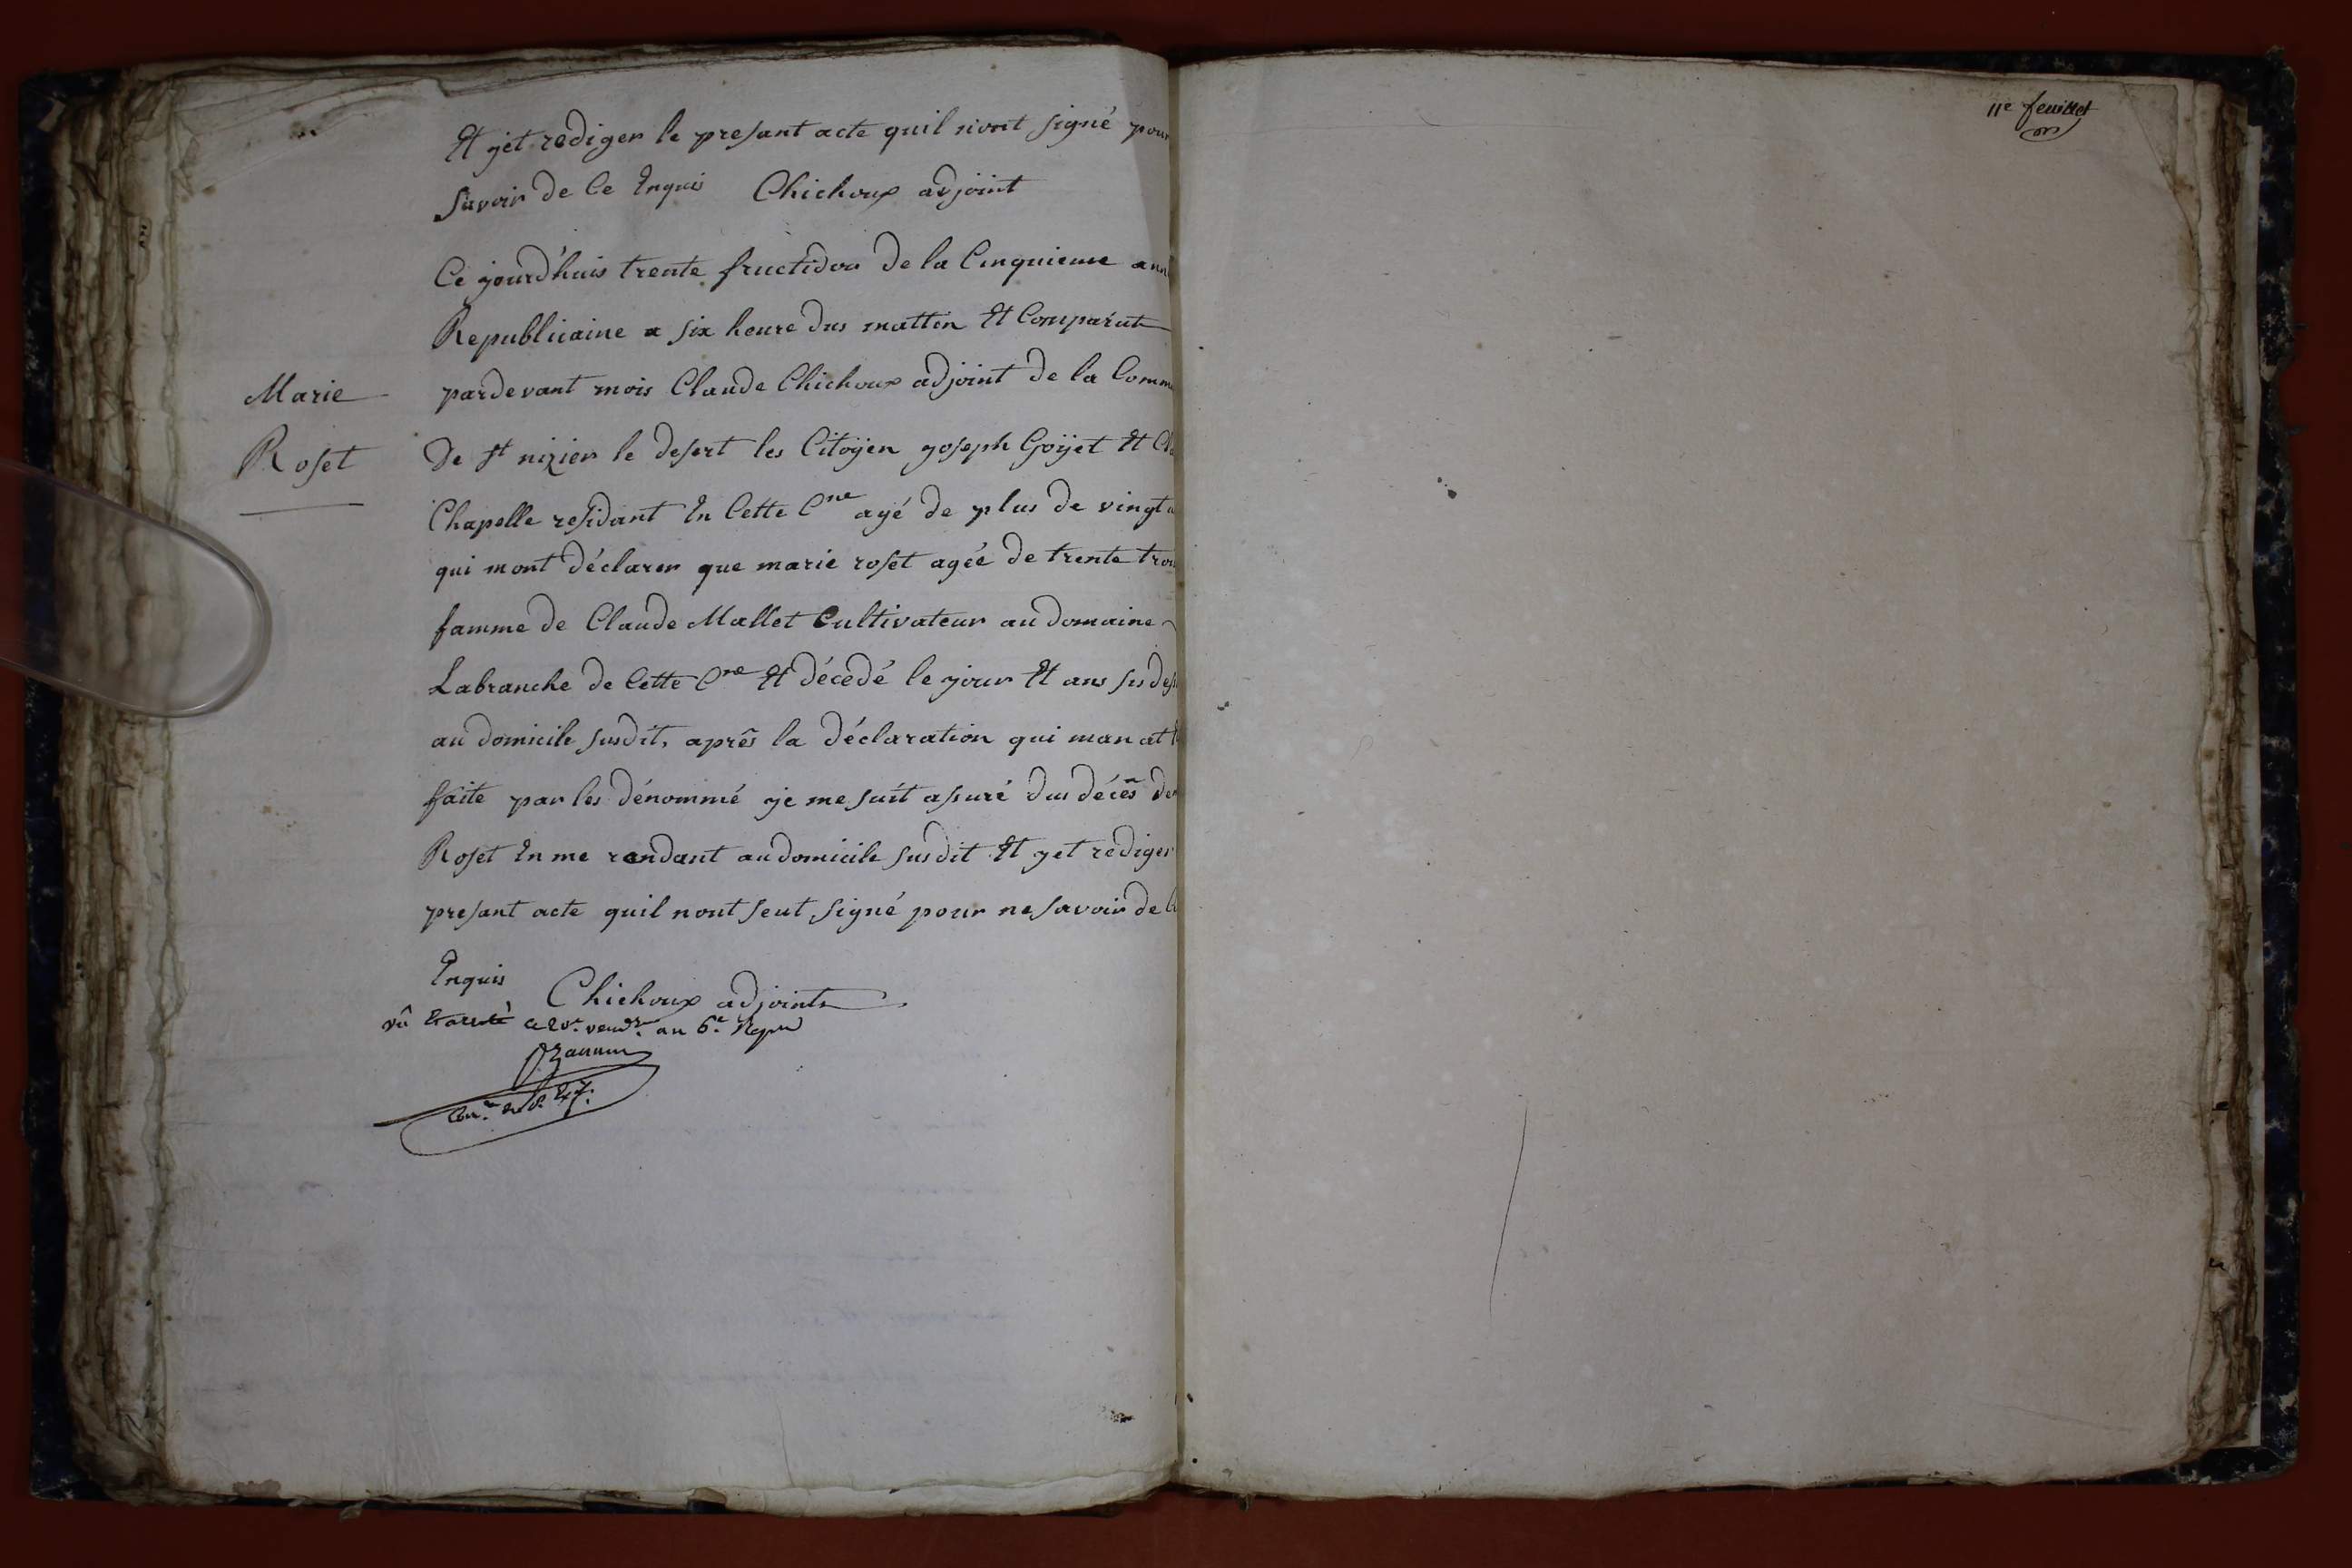 11e feuillet
Et jet rediger le presant acte quil niont signé pour
savoir de Ce Enquis Chichoux adjoint
Ce jourd'huis trente fructidor de la Cinquieme ann
Republicaine a six heure dus mattin Et Comparut
Marie
pardevant mois Claude Chichoux adjoint de la Comm
Roset
de st nizier le desert les Citoÿen joseph Goÿet Et Cl
Chapelle residant En Cette Cne agé de plus de vingt
qui mont déclarer que marie roset agée de trente troi
famme de Claude Mallet Cultivateur au domaine
Labranche de Cette Cne Et décedé le jour Et ans susdes
au domicile susdit, aprês la déclaration qui man at
faite par les dénommé je me suit assuré dus décês de
Roset En me randant au domicile susdit Et jet rediger
presant acte quil nont seut signé pour ne savoir de
Enquis Chichoux adjoint
vû ce vend. an 6e